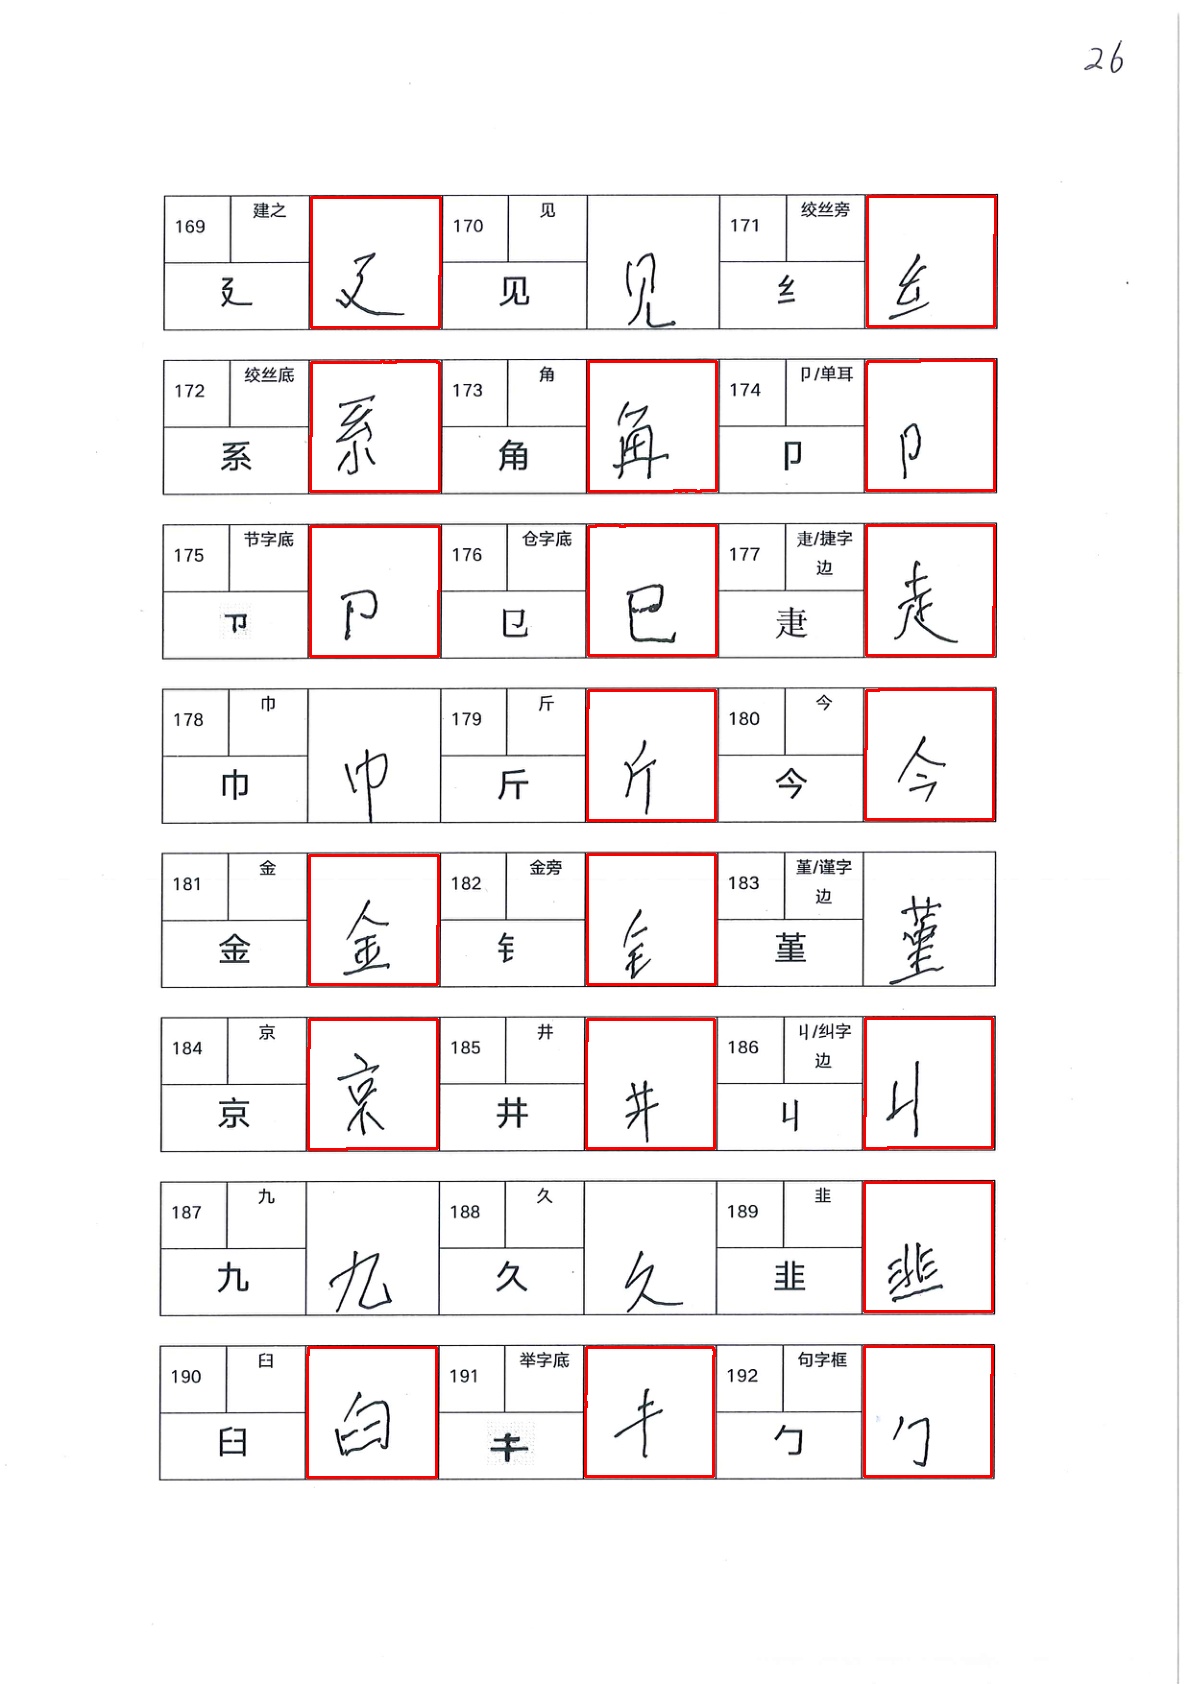 26
169 建之 廴 廴 170 见 见 见 171 绞丝旁 纟 纟
172 绞丝底 系 系 173 角 角 角 174 卩/单耳 卩 卩
175 节字底 卩 176 仓字底 㔾 巳 177 疌/捷字边 疌
178 巾 巾 巾 179 斤 斤 斤 180 今 今 今
181 金 金 金 182 金旁 钅 钅 183 堇/谨字边 堇 堇
184 京 京 京 185 井 井 井 186 丩/纠字边 丩 丩
187 九 九 九 188 久 久 久 189 韭 韭 韭
190 臼 臼 臼 191 举字底 192 句字框 勹 勹